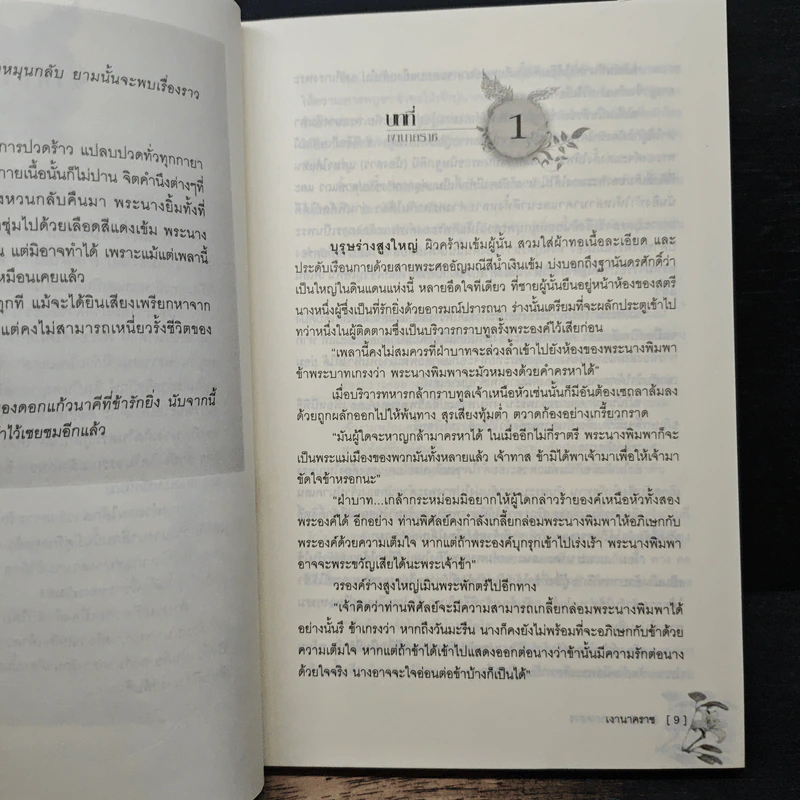 หมุนกลับ ยามนั้นจะพบเรื่องราว
การปวดร้าว แปลบปวดทั่วทุกกายา
กายเนื้อนั้นก็ไม่ปาน จิตคำนึงต่างๆที่
งหวนกลับคืนมา พระนางยิ้มทั้งที่
ชุ่มไปด้วยเลือดสีแดงเข้ม พระนาง
น แต่มิอาจทำได้ เพราะแม้แต่เพลานี้
หมือนเคยแล้ว
ทุกที แม้จะได้ยินเสียงเพรียกหาจาก
แต่คงไม่สามารถเหนี่ยวรั้งชีวิตของ
องดอกแก้วนาคีที่ข้ารักยิ่ง นับจากนี้
าไว้เชยชมอีกแล้ว
บทที่ 1
เงานาคราช
บุรุษร่างสูงใหญ่ ผิวคร้ามเข้มผู้นั้น สวมใส่ผ้าทอเนื้อละเอียด และ
ประดับเรือนกายด้วยสายพระศออัญมณีสีน้ำเงินเข้ม บ่งบอกถึงฐานันดรศักดิ์ว่า
เป็นใหญ่ในดินแดนแห่งนี้ หลายอึดใจทีเดียว ที่ชายผู้นั้นยืนอยู่หน้าห้องของสตรี
นางหนึ่งผู้ซึ่งเป็นที่รักยิ่งด้วยอารมณ์ปรารถนา ร่างนั้นเตรียมที่จะผลักประตูเข้าไป
ทว่าหนึ่งในผู้ติดตามซึ่งเป็นบริวารกราบทูลรั้งพระองค์ไว้เสียก่อน
“เพลานี้คงไม่สมควรที่ฝ่าบาทจะล่วงล้ำเข้าไปยังห้องของพระนางพิมพา
ข้าพระบาทเกรงว่า พระนางพิมพาจะมัวหมองด้วยคำครหาได้”
เมื่อบริวารทหารกล้ากราบทูลเจ้าเหนือหัวเช่นนั้นก็มีอันต้องเซถลาล้มลง
ด้วยถูกผลักออกไปให้พ้นทาง สุรเสียงทุ้มต่ำ ตวาดก้องอย่างเกรี้ยวกราด
“มันผู้ใดจะหาญกล้ามาครหาได้ ในเมื่ออีกไม่กี่ราตรี พระนางพิมพาก็จะ
เป็นพระแม่เมืองของพวกมันทั้งหลายแล้ว เจ้าทาส ข้ามิได้พาเจ้ามาเพื่อให้เจ้ามา
ขัดใจข้าหรอกนะ”
“ฝ่าบาท...เกล้ากระหม่อมมิอยากให้ผู้ใดกล่าวร้ายองค์เหนือหัวทั้งสอง
พระองค์ได้ อีกอย่าง ท่านพิศัลย์คงกำลังเกลี้ยกล่อมพระนางพิมพาให้อภิเษกกับ
พระองค์ด้วยความเต็มใจ หากแต่ถ้าพระองค์บุกรุกเข้าไปเร่งเร้า พระนางพิมพา
อาจจะพระขวัญเสียได้นะพระเจ้าข้า”
วรองค์ร่างสูงใหญ่เมินพระพักตร์ไปอีกทาง
“เจ้าคิดว่าท่านพิศัลย์จะมีความสามารถเกลี้ยกล่อมพระนางพิมพาได้
อย่างนั้นรึ ข้าเกรงว่า หากถึงวันมะรืน นางก็คงยังไม่พร้อมที่จะอภิเษกกับข้าด้วย
ความเต็มใจ หากแต่ถ้าข้าได้เข้าไปแสดงออกต่อนางว่าข้านั้นมีความรักต่อนาง
ด้วยใจจริง นางอาจจะใจอ่อนต่อข้าบ้างก็เป็นได้”
เงานาคราช [ 9 ]